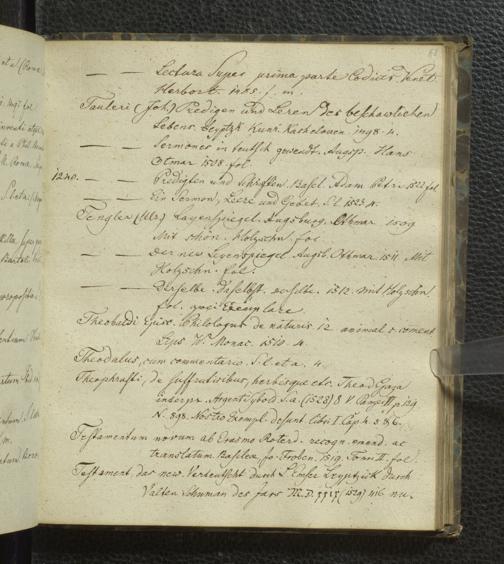 — — Lectura Super prima parte Codicis Venet.
Herbort 1485. f. m.
Tauleri (Joh) Predigen und Leren des beschawlichen
Lebens. Leyptzk Kunr. Kachelouen. 1498. 4.
— — Sermones in teutsch gewendt. Augsp. Hans
Otmar 1508. fol.
1240. — — Predigten und Schriften. Basel. Adam Petri. 1522 fol
— — Ein Sermon, Leere und Gebet. S. l. 1523. 4.
Tengler (Ulr.) Layenspiegel. Augsburg. Othmar 1509
Mit schön. Holzschn. fol.
— — Der new Leyenspiegel. Augsb. Othmar. 1511. Mit
Holzschn. fol.
— — Derselbe. Daselbst. derselbe. 1512. mit Holzschn.
fol. zwei Exemplare.
Theobaldi Episc. Philologus de naturis 12 animal. c. coment
Lips. W. Monac. 1510. 4.
Theodolus, cum commentario. S. l. et a. 4.
Theophrasti, de suffruticibus, herbisque etc. Theod. Gaza
interpr. Argent. Sybold S. a. (1528) 8 V. Panzer VI p 124
N. 898. Nostro Exempl. desunt libri I. Cap.
Testamentum novum ab Erasmo Roterd. recogn. emend. ac
translatum Basileae, Jo. Froben. 1519. Tomi II. fol.
Testament, das new. Verteutscht durch Emser Leyptzick durch
Valten Schuman des jars M. D. (1529)